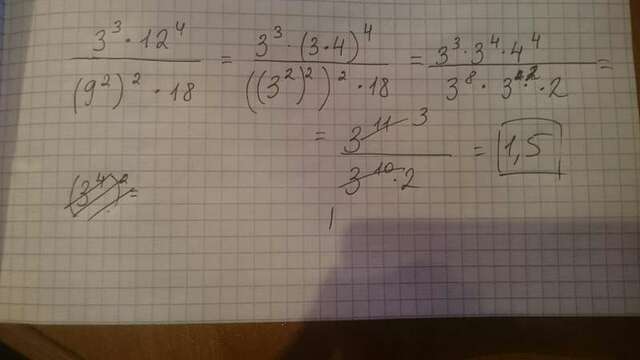 3³ · 12⁴ / (9²)² · 18 = 3³ · (3 · 4)⁴ / ((3²)²)² · 18 = 3³ · 3⁴ · 4⁴ / 3⁸ · 3² · 2 =
= 3¹¹ 3 / 3¹⁰ · 2 = 1,5
(3⁴)² =